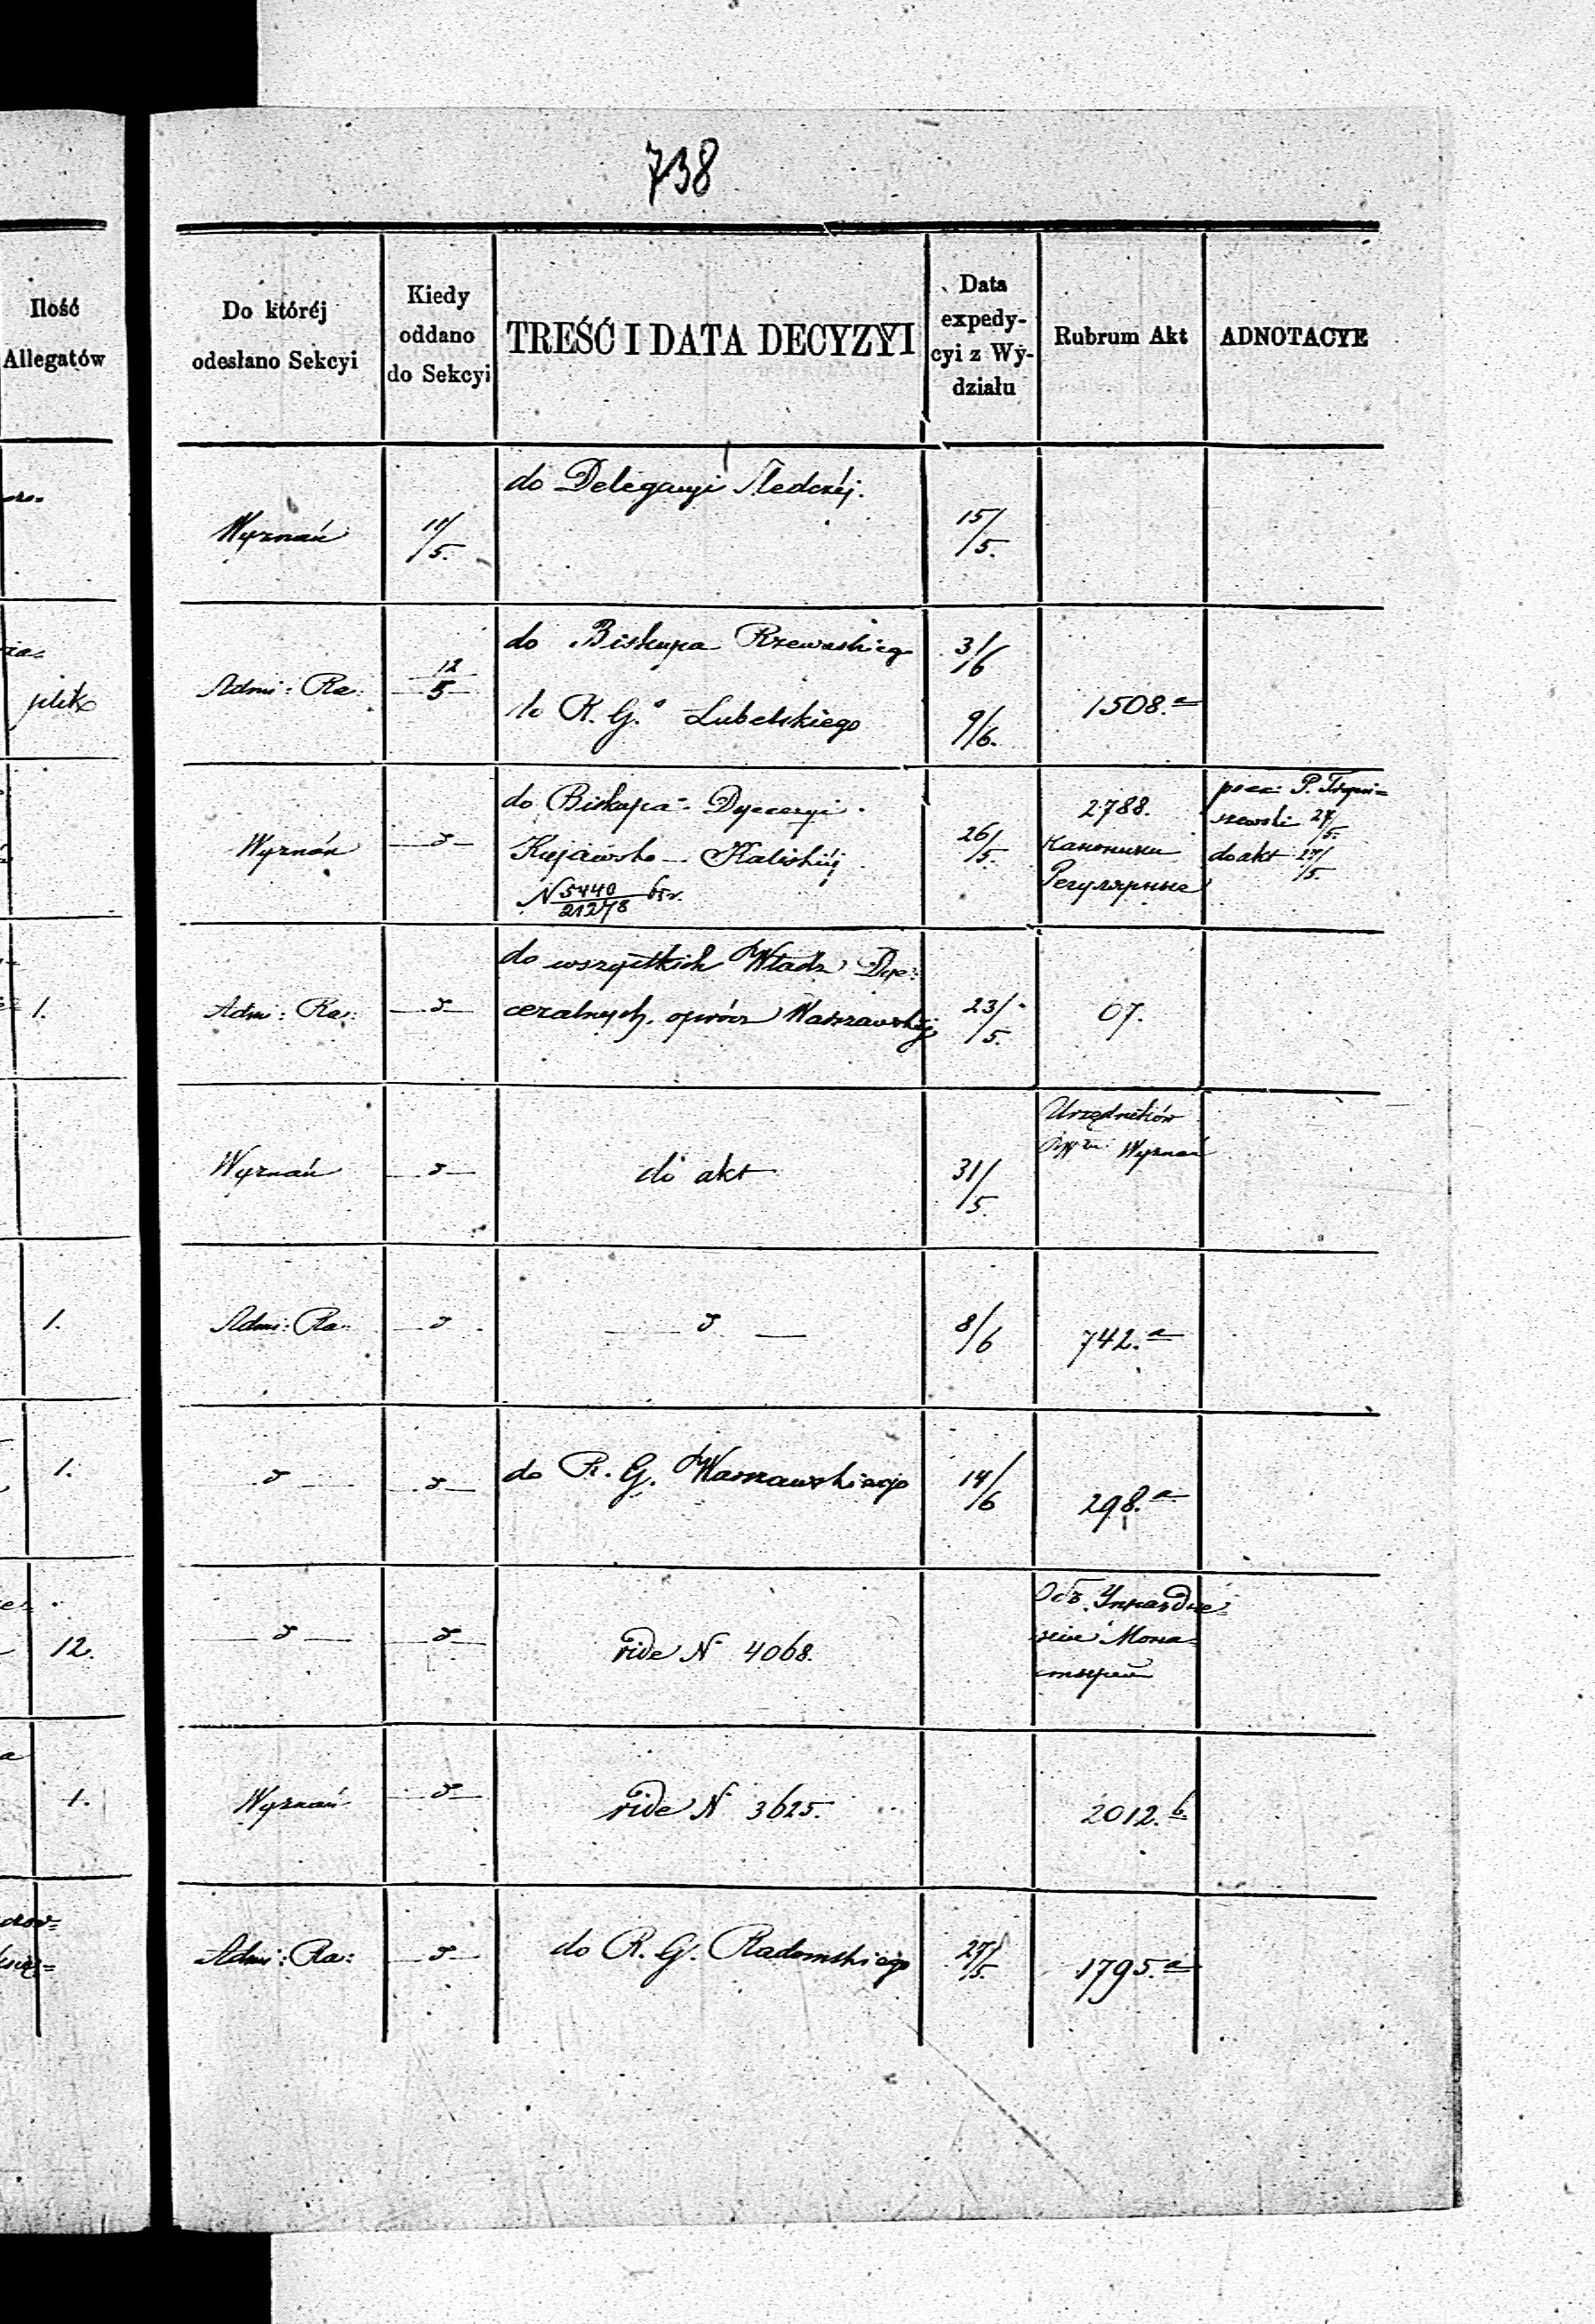 738
Ilość
Allegatów
Do któréj
odesłano Sekcyi
Kiedy
oddano
do Sekcyi
TREŚĆ I DATA DECYZYI
Data
expedy-
cyi z Wy-
działu
Rubrum Akt
ADNOTACYE
do Delegacyi Śledczéj.
Wyznań
11/5.
15/5.
plik
Admi: Ra:
12/5
do Biskupa Rzewuskiego
3/6
do R. G.º Lubelskiego
9/6.
1508.a
Wyznań
do Biskupa Dyecezyi
Kujawsko-Kaliskiéj
N 5440/21278
26/5.
2788.
Каноники
Регулярные
P.
szewski 27/5.
do akt 27/5.
1.
Admi: Ra:
do wszystkich Władz Dye-
cezalnych, oprócz Warszawskiéj
23/5.
07.
Wyznań
do akt
31/5.
Urzędników
Wyznań
1.
Admi: Ra:
8/6
742.a
1.
do R. G. Warszawskiego
14/6
298.a
12.
vide N 4068.
Объ Упраздне-
ніи Мона-
стырей
1.
Wyznań
vide N 3625.
2012.b
Admi: Ra:
do R. G. Radomskiego
27/5.
1795.a